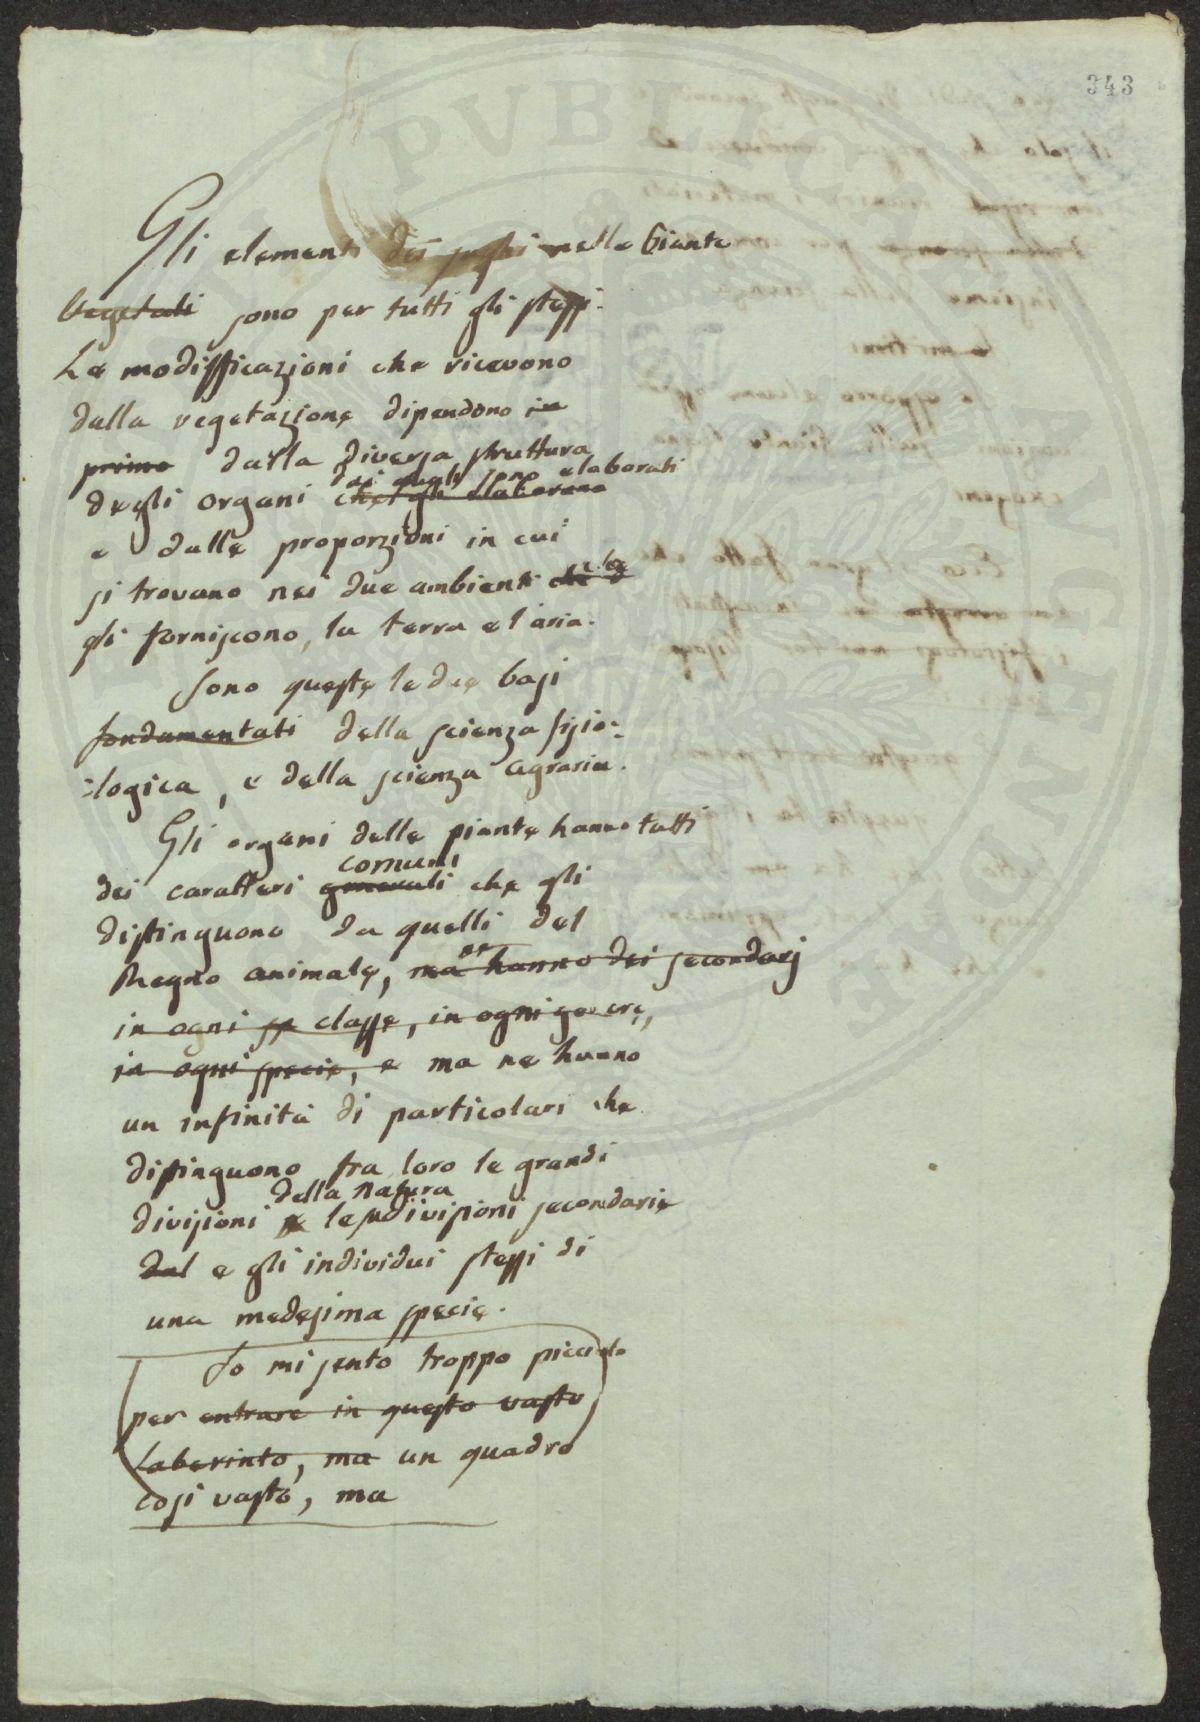 343
Gli elementi dei sughi nelle Piante
Vegetali sono per tutti gli stessi.
Le modifficazioni che ricevono
dalla vegetazione dipendono in
primo dalla diversa struttura
dai quali sono elaborati
degli organi che gli elaborano
e dalle proporzioni in cui
si trovano nei due ambienti che
gli forniscono, la terra e l'aria.
Sono queste le due basi
fondamentali della scienza fisio-
logica, e della scienza agraria.
Gli organi delle piante hanno tutti
comuni
dei caratteri generali che gli
distinguono da quelli del
Regno animale, ma ne hanno dei secondarj
in ogni sp classe, in ogni genere,
in ogni specie, e ma ne hanno
un infinità di particolari che
distinguono fra loro le grandi
della natura
divisioni e le sudivisioni secondarie
dal e gli individui stessi di
una medesima specie.
Io mi sento troppo piccolo
per entrare in questo vasto
Laberinto, ma un quadro
così vasto, ma